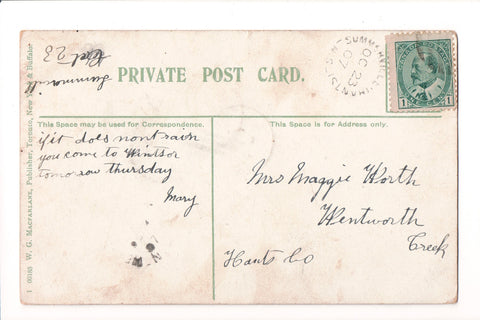 Summerville
Oct 23
PRIVATE POST CARD.
SUMMERVILLE (HANTS) N.S.
OC 23
07
1 1
This Space may be used for Correspondence.
This Space is for Address only.
if it does nont rain
you come to Windsor
tomorow thursday
Mary
Mrs Maggie Worth
Wentworth
Creek
Hants Co
1 00163 W. G. MACFARLANE, Publisher, Toronto, New York & Buffalo